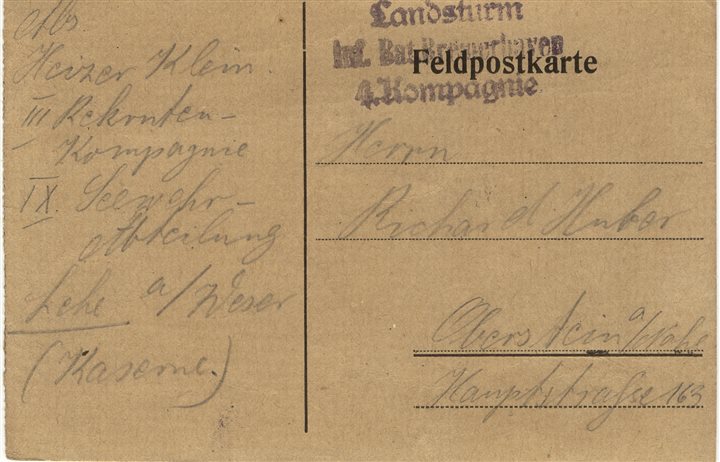 Abs
Heizer Klein.
III Rekruten-
Kompagnie
IX. Seewehr-
Abteilung
Lehe a/Weser
(Kaserne.)
Landsturm
Inf. Bat. Bremerhaven
4. Kompagnie
Feldpostkarte
Herrn
Richard Huber
Oberstein a/Nahe
Hauptstraße 163